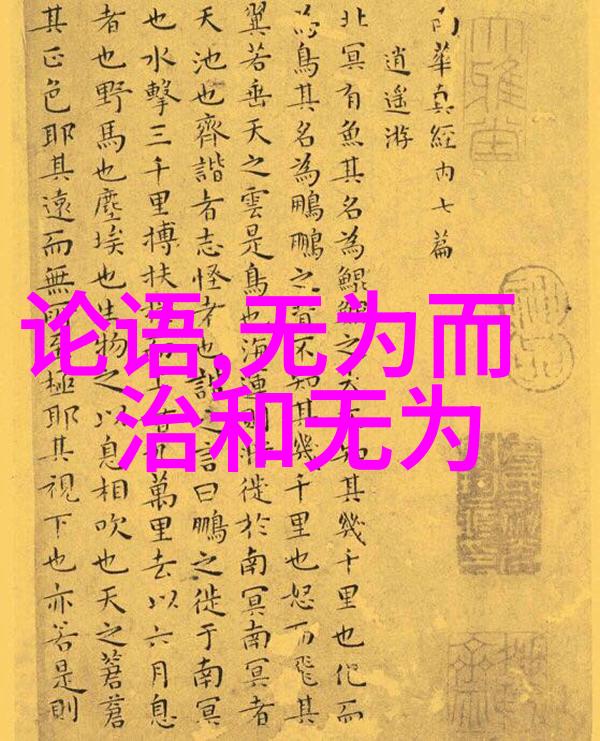 论语,无为而
治和无为
南華真經内七篇
逍遙游
北冥有魚其名為鯤鯤之大不知其幾千里也化而
為鳥其名為鵬鵬之背不知其幾千里也怒而飛其
翼若垂天之雲是鳥也海運則將徙於南冥南冥者
天池也齊諧者志怪者也諧之言曰鵬之徙于南冥
也水擊三千里搏扶搖而上者九萬里去以六月息
者也野馬也塵埃也生物之以息相吹也天之蒼蒼
其正色耶其遠而無所至極耶其視下也亦若是則
大雅堂